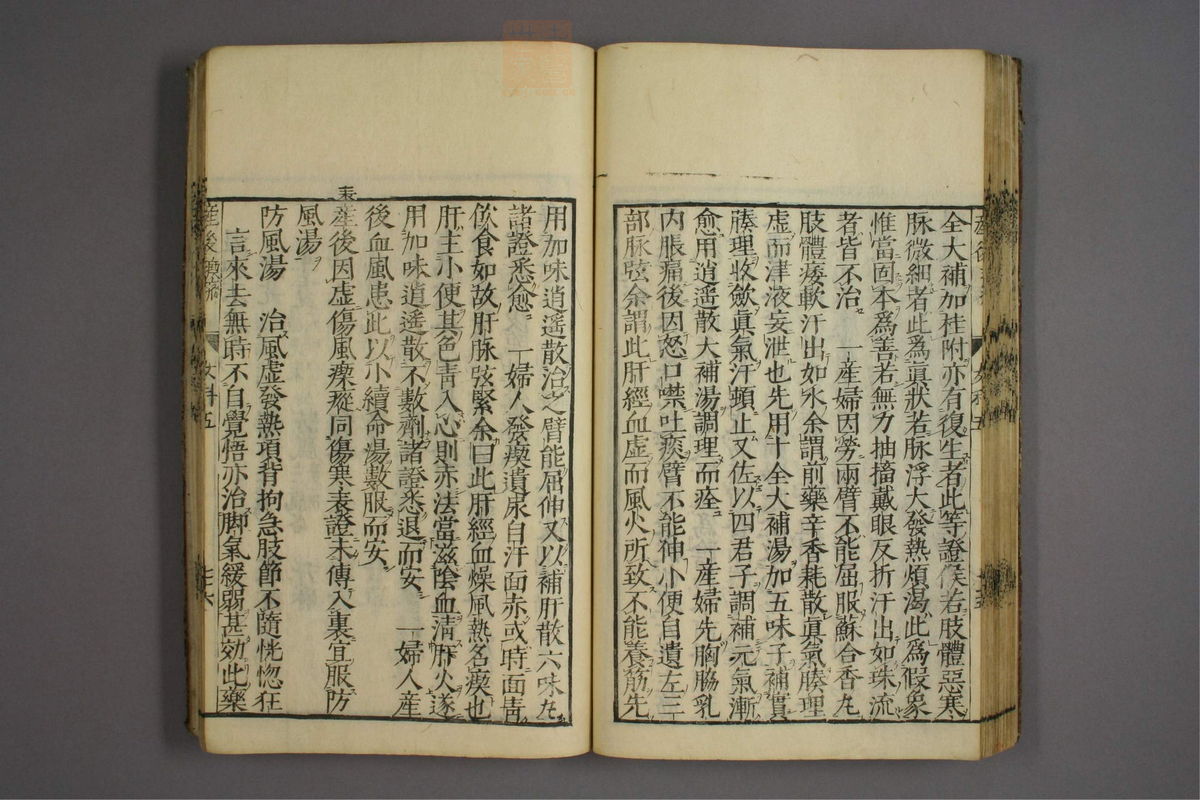 全大補加桂附亦有復生者此等證候若肢體惡寒
脉微細者此爲眞狀若脉浮大發熱煩渴此爲假象
惟當固本爲善若無力抽搐戴眼反折汗出如珠流
者皆不治　一産婦因勞兩臂不能屈服蘇合香丸
肢體痿軟汗出如水余謂前藥辛香耗散眞氣腠理
虛而津液妄泄也先用十全大補湯加五味子補實
腠理收斂眞氣汗頓止又佐以四君子調補元氣漸
愈用逍遥散大補湯調理而痊　一産婦先胸脇乳
内脹痛後因怒口噤吐痰臂不能伸小便自遺左三
部脉弦余謂此肝經血虛而風火所致不能養筋先
用加味逍遥散治之臂能屈伸又以補肝散六味丸
諸證悉愈　一婦人發瘈遺尿自汗面赤或時面青
飲食如故肝脉弦緊余曰此肝經血燥風熱名瘈也
肝主小便其色青入心則赤法當滋陰血清肝火遂
用加味逍遥散不數劑諸證悉退而安　一婦人産
後血風患此以小續命湯數服而安
表
産後因虛傷風瘈瘲同傷寒表證未傳入裏宜服防
風湯
防風湯　治風虛發熱項背拘急肢節不隨恍惚狂
言來去無時不自覺悟亦治脚氣緩弱甚効此藥
女科五